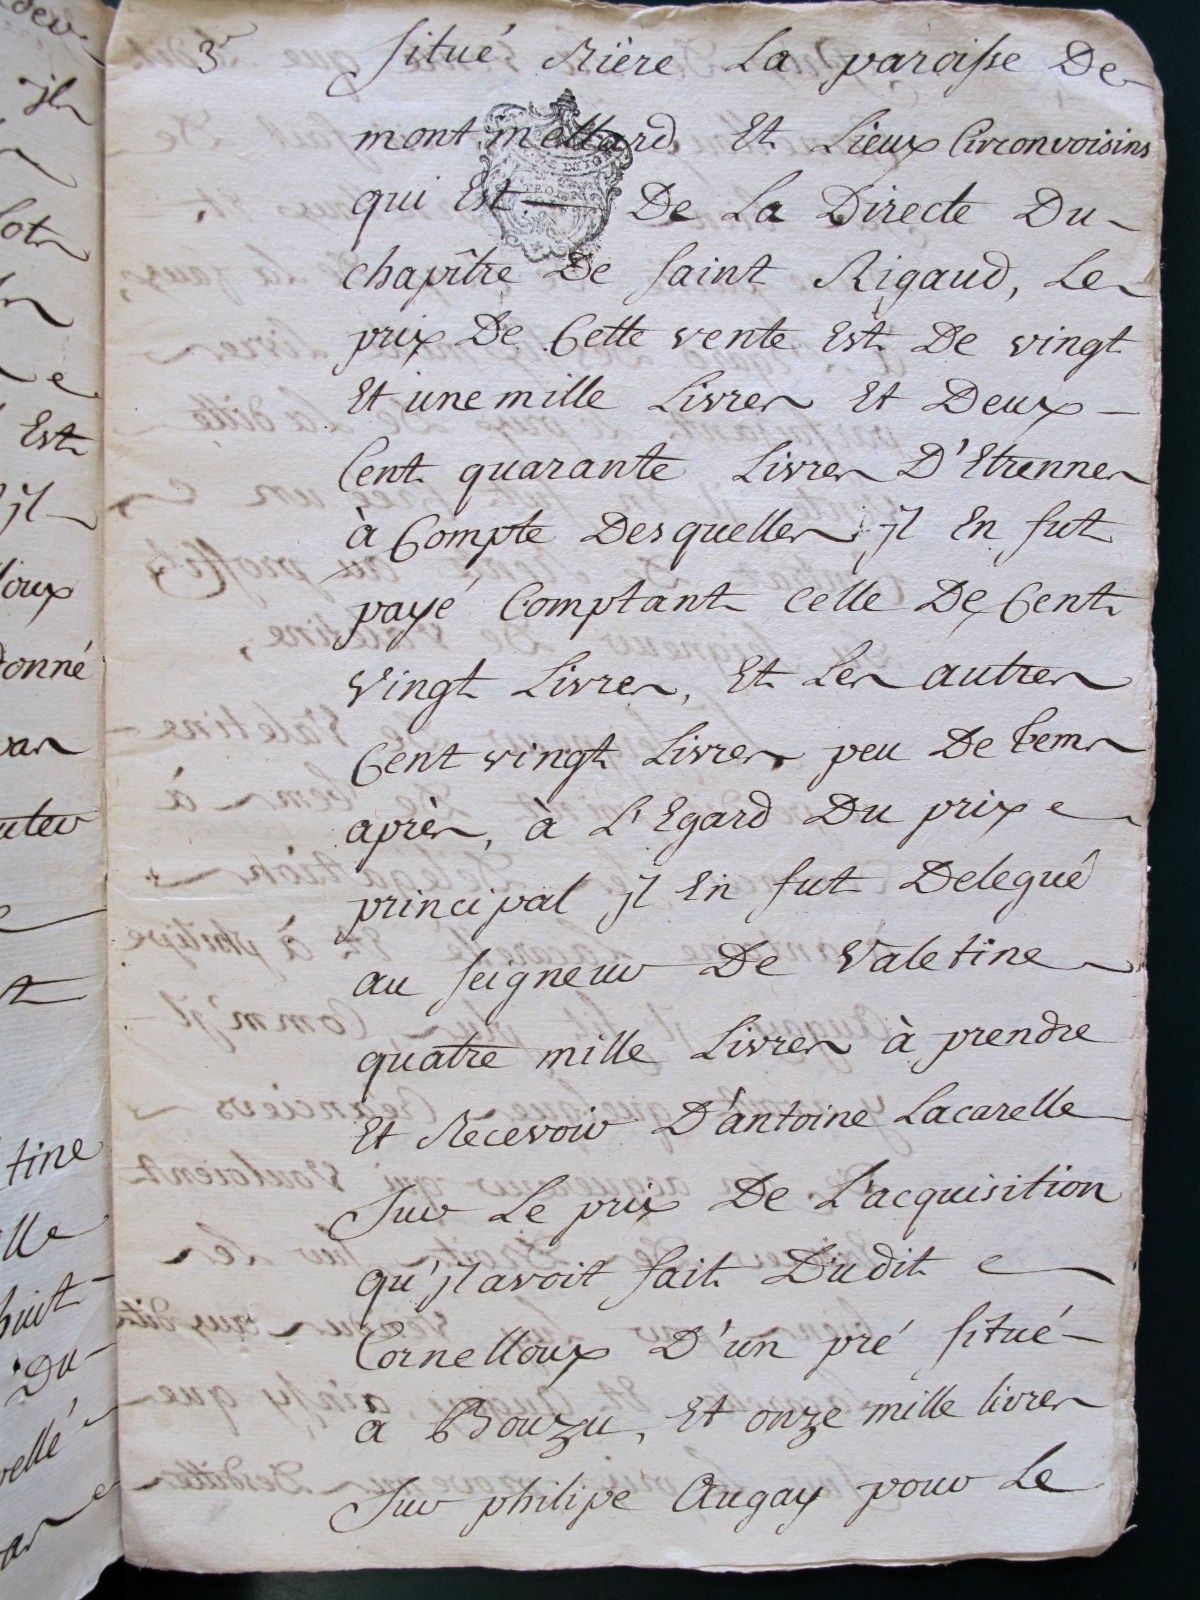 3e
situé Riëre La paroisse De
montmellard Et Lieux Circonvoisins
qui Est De La Directe Du
chapître De saint Rigaud, Le
prix De Cette vente Est De vingt
Et une mille Livres Et Deux
Cent quarante Livres D'Etrennes
à Compte Desquelles jl En fut
payé Comptant celle De Cent
vingt Livres, Et Les autres
Cent vingt Livres peu De tems
après, à L'Egard Du prix
principal jl En fut Delegué
au seigneur De Valetine
quatre mille Livres à prendre
Et Recevoir D'antoine Lacarelle
Sur Le prix De L'acquisition
qu'jl avoit fait Dudit
Cornelloux D'un pré situé
a Bouzu, Et onze mille livres
Sur philipe Augay pour Le